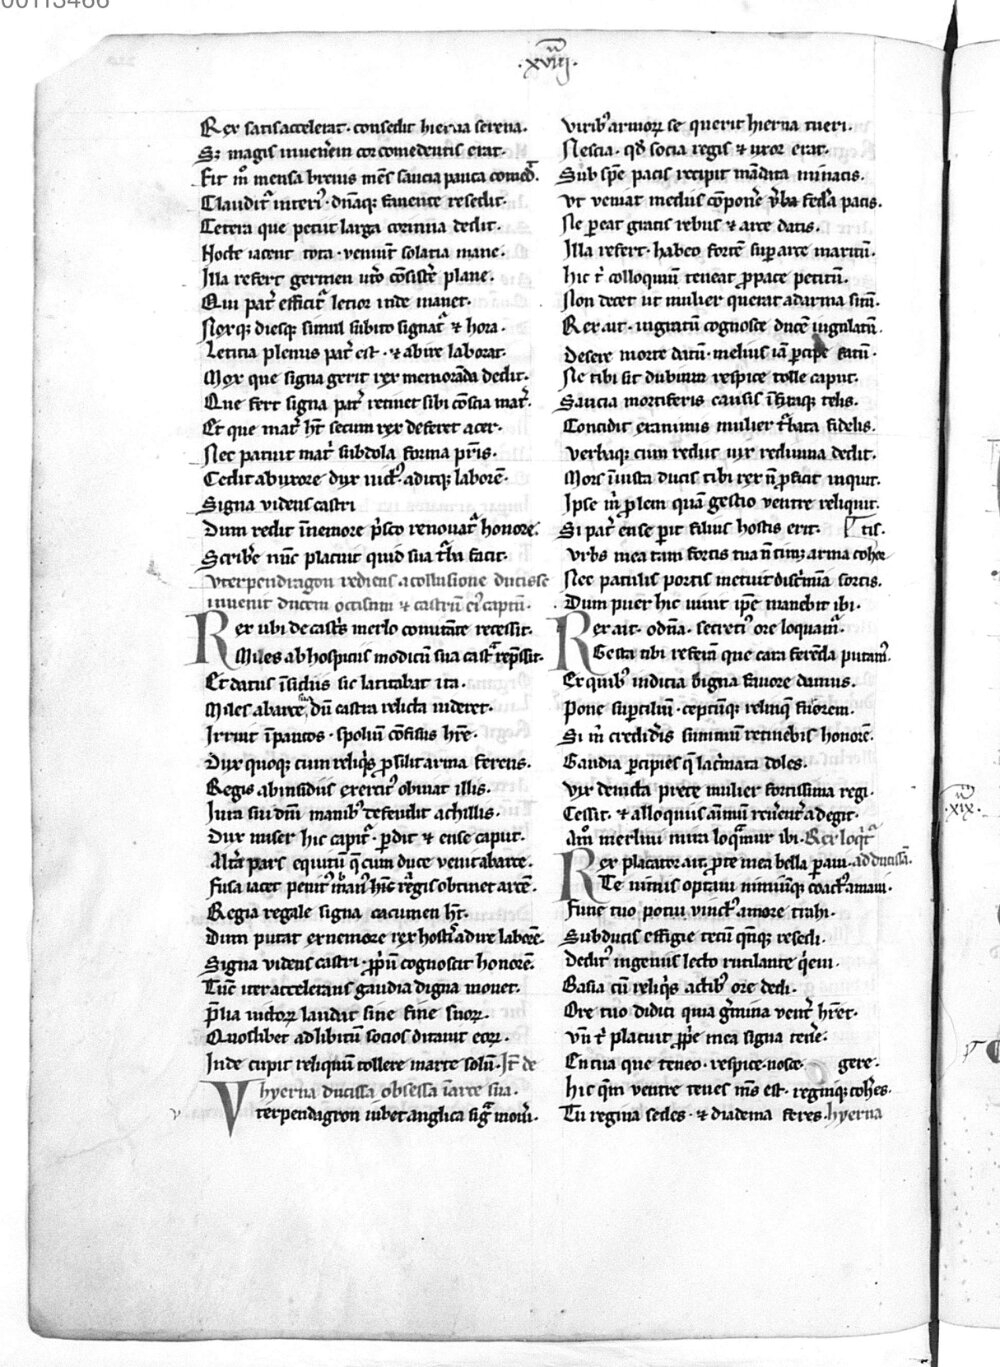 .xviii.
Rex satis accelerat. consedit hierna serena.
S; magis iuuenem cor comedentis erat.
Fit m̄ mensa breuis mēs saucia pauca comed̄.
Claudit᷑ interi᷒. dn̄aq; fauente resedit.
Cetera que petiit larga corinna dedit.
Nocte iacent tota. veniūt solatia mane.
Illa refert germen utō cōsist᷑e plane.
Qui pat᷑ efficit᷑ letior inde manet.
Noxq; diesq; simul subito signat᷑ & hora.
Leticia plenus pat᷑ est. & abire laborat.
Mox que signa gerit rex memorāda dedit.
Que fert signa pat᷑ retinet sibi cōscia mat᷑.
Et que mat᷑ ht̄ secum rex deferet acer.
Nec patuit mat᷑ subdola forma pr̄is.
Cedit ab uxore dux uict᷒. aditq; laborē.
Signa videns castri
Dum redit ī nemore p̄sco renouat᷑ honore.
Scribe nūc placuit quid sua t᷑ba facit.
Vterpendragon rediens a collusione ducisse
inuenit ducem occisum & castrū ei᷒ captū.
Rex ubi de castris merlo comitāte recessit.
Miles ab hospitiis modicū sua cast᷑ rep̄ssit.
Et datus īsidiis sic latitabat ita.
Miles ab arce dū castra relicta uideret.
Irruit ī paucos. spoliū cōfisus hr̄e.
Dux quoq; cum reliq̇s p̄silit arma ferens.
Regis ab insidiis exercit᷒ obuiat illis.
Iura sui dn̄i manib᷒ defendit achillis.
Dux miser hic capit᷑. p̄dit & ense caput.
Alt᷑a pars equitū q̄ cum duce venit ab arce.
Fusa iacet penit᷒ man᷒ hīc regis obtinet arcē.
Regia regale signa cacumen ht̄.
Dum putat ex nemore rex hostē adire laborē.
Signa videns castri. p̄p̄iū cognoscit honorē.
Tūc iter accelerans gaudia digna mouet.
p̄lia uictoꝝ laudat sine fine suoꝝ.
Quoslibet ad libitum socios ditauit eoꝝ.
Inde cupit reliquū tollere marte solū. It̄ de
hyerna ducissa obsessa ī arce sua.
Vterpendragron iubet anglica sig᷑ moūi.
Virib᷒ armoꝝ se querit hierna tueri.
Nescia. qd̄ socia regis & uxor erat.
Sub spe pacis recipit mādata minacis.
Vt veniat medius cōpone᷑ v̄ba fed᷑a pacis.
Ne pereat gratis rebus & arce datis.
Illa refert. habeo fortē sup̄ arce maritū.
Hic t᷑ colloquium teneat p̄ pace petitū.
Non decet ut mulier querat ad arma sitū.
Rex ait. ingratū cognosce ducē iugulatū.
Desere morte datū. melius iā p̄cipe fatū.
Ne tibi sit dubium respice tolle caput.
Saucia mortiferis causis ī hītaq; telis.
Concidit exanimis mulier t᷑bata fidelis.
Verbaq; cum rediit uix rediuiua dedit.
Mors ī iusta ducis tibi rex n̄ p̄ficit inquit.
Ipse m̄ p̄lem quā gestio ventre reliquit.
Si pat᷑ ense perit filius hostis erit. tis.
Vrbs mea tam fortis tua n̄ timz arma cohor
Nec patulis portis metuit disc᷑mia sortis.
Dum puer hic uiuit ip̄e manebit ibi.
Rex ait. o dn̄a. secreti᷒ ore loquam᷑.
Gesta tibi referā que cara ferēda putam᷑.
Ex quib᷒ indicia digna fauore damus.
Pone sup̄ciliū. ceptūq; relinq̄ furorem.
Si m̄ credid᷑is summū retinebis honorē.
Gaudia p̄cipies q̄ lac᷑mata doles.
Vix deuicta prece mulier fortissima regi.
Cessit. & alloquiis animū reuerēt᷑ adegit.
Am̄ merlini mira loq̄mur ibi. Rex loq̇t᷑
Rex placator ait. p̄te mea bella p̄aui. ad ducissā.
Te nimis optaui nimiūq; coact᷒ amaui.
Fune tuo potui vinct᷒ amore trahi.
Sub ducis effigie tecū qn̄q; resedi.
Dedit᷒ ingenuis lecto rutilante q̇eui.
Basia cū reliq̇s actib᷒ ore dedi.
Ore tuo didici quia g᷑mina vent᷑ hr̄et.
Vn̄ t᷑ placuit p̄p̄e mea signa tene᷑.
En tua que teneo. respice. nosce. gere.
Hic q̄m ventre tenes m̄s est. reginq; cohes.
Tu regina sedes. & diadema feres. hyerna
.xix.